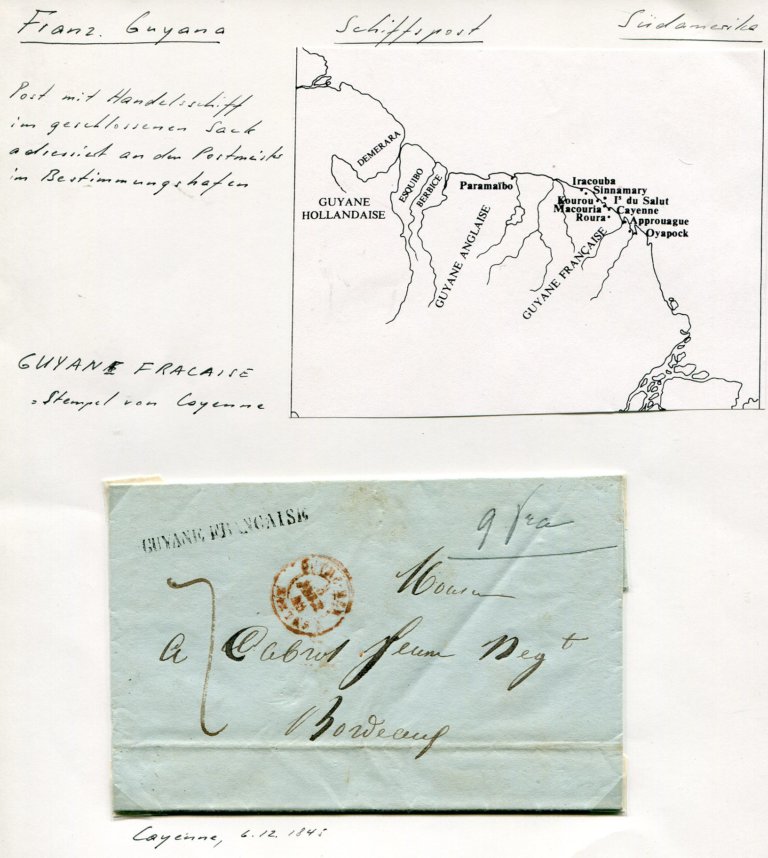 Franz. Guyana
Schiffspost
Südamerika
Post mit Handelsschiff
im geschlossenen Sack
adressiert an den Postmeister
im Bestimmungshafen
DEMERARA
ESQUIBO
BERBICE
GUYANE
HOLLANDAISE
Paramaïbo
GUYANE ANGLAISE
GUYANE FRANÇAISE
Iracouba
Sinnamary
Kourou
Iˢ du Salut
Macouria
Cayenne
Roura
Approuague
Oyapock
GUYANE FRACAISE
= Stempel von Cayenne
GUYANE FRANCAISE
7
Monsieur
A Cabrol Jeune Negt
Bordeaux
Cayenne, 6.12.1845